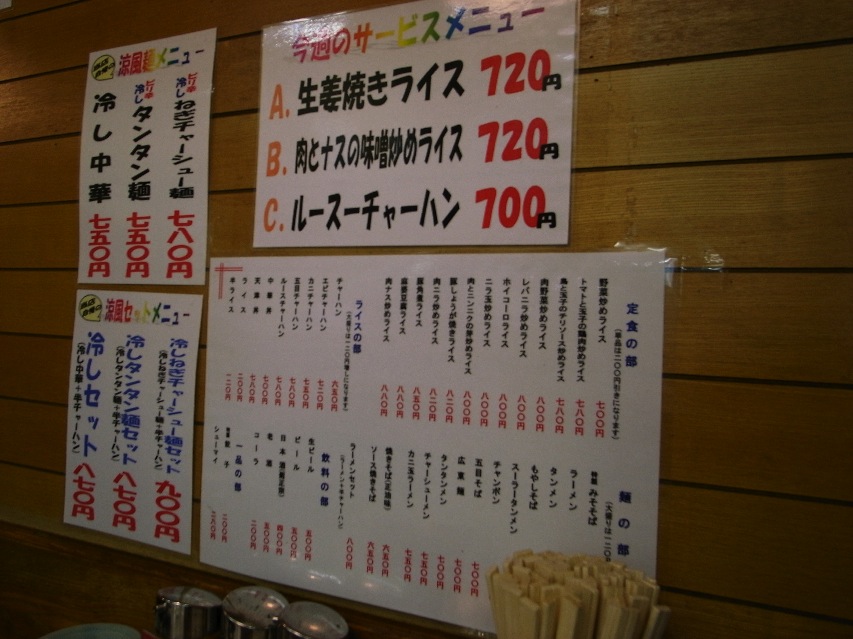 今週のサービスメニュー
A. 生姜焼きライス 720円
B. 肉とナスの味噌炒めライス 720円
C. ルースーチャーハン 700円
涼風麺メニュー
ピリ辛冷しねぎチャーシュー麺 七八〇円
ピリ辛冷しタンタン麺 七五〇円
冷し中華 七五〇円
涼風セットメニュー
冷しねぎチャーシュー麺セット 九〇〇円
(冷しねぎチャーシュー麺+半チャーハン)
冷しタンタン麺セット 八七〇円
(冷しタンタン麺+半チャーハン)
冷しセット 八七〇円
(冷し中華+半チャーハン)
定食の部
(単品は一〇〇円引きになります)
野菜炒めライス 七〇〇円
トマトと玉子の鶏肉炒めライス 七八〇円
鳥と玉子のチリソース炒めライス 七八〇円
肉野菜炒めライス 八〇〇円
レバニラ炒めライス 八〇〇円
ホイコーロライス 八〇〇円
ニラ玉炒めライス 八〇〇円
肉とニンニクの芽炒めライス 八〇〇円
豚しょうが焼きライス 八二〇円
肉ニラ炒めライス 八二〇円
豚角煮ライス 八五〇円
麻婆豆腐ライス 八八〇円
肉ナス炒めライス 八八〇円
ライスの部
チャーハン 六五〇円
エビチャーハン 七二〇円
カニチャーハン 七五〇円
五目チャーハン 七八〇円
ルースチャーハン 七八〇円
中華丼 七〇〇円
天津丼 七八〇円
ライス 二〇〇円
半ライス 一二〇円
麺の部
みそそば
ラーメン
タンメン
もやしそば
スーラータンメン
チャンポン
五目そば 七〇〇円
広東麺 七〇〇円
タンタンメン 七〇〇円
チャーシューメン 七五〇円
カニ玉ラーメン 七五〇円
焼きそば(正油味) 六五〇円
ソース焼きそば 六五〇円
ラーメンセット 八〇〇円
(ラーメン+半チャーハン)
飲料の部
生ビール 五〇〇円
ビール 五〇〇円
日本酒 四〇〇円
老酒 五〇〇円
コーラ 二〇〇円
一品の部
餃子 三〇〇円
シューマイ 二八〇円